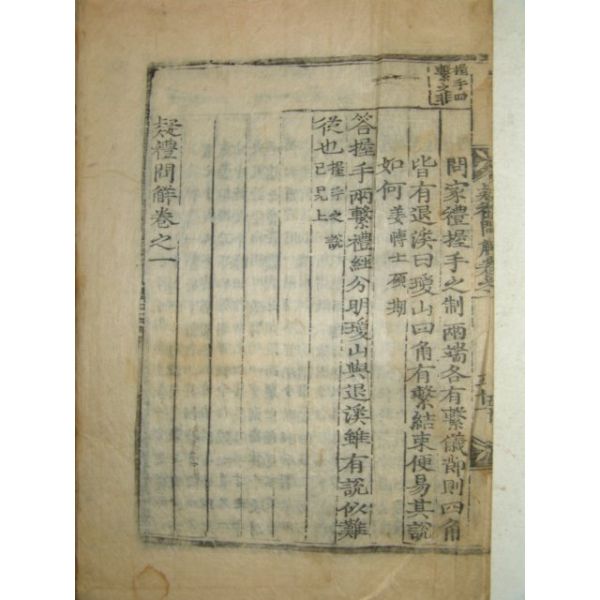 握手四
繫之非
問家禮握手之制兩端各有繫儀節則四角
皆有退溪曰瓊山四角有繫結束便易其說
如何姜博士碩期
答握手兩繫禮經分明瓊山與退溪雖有說似難
從也握手之說已見上
疑禮問解卷之一